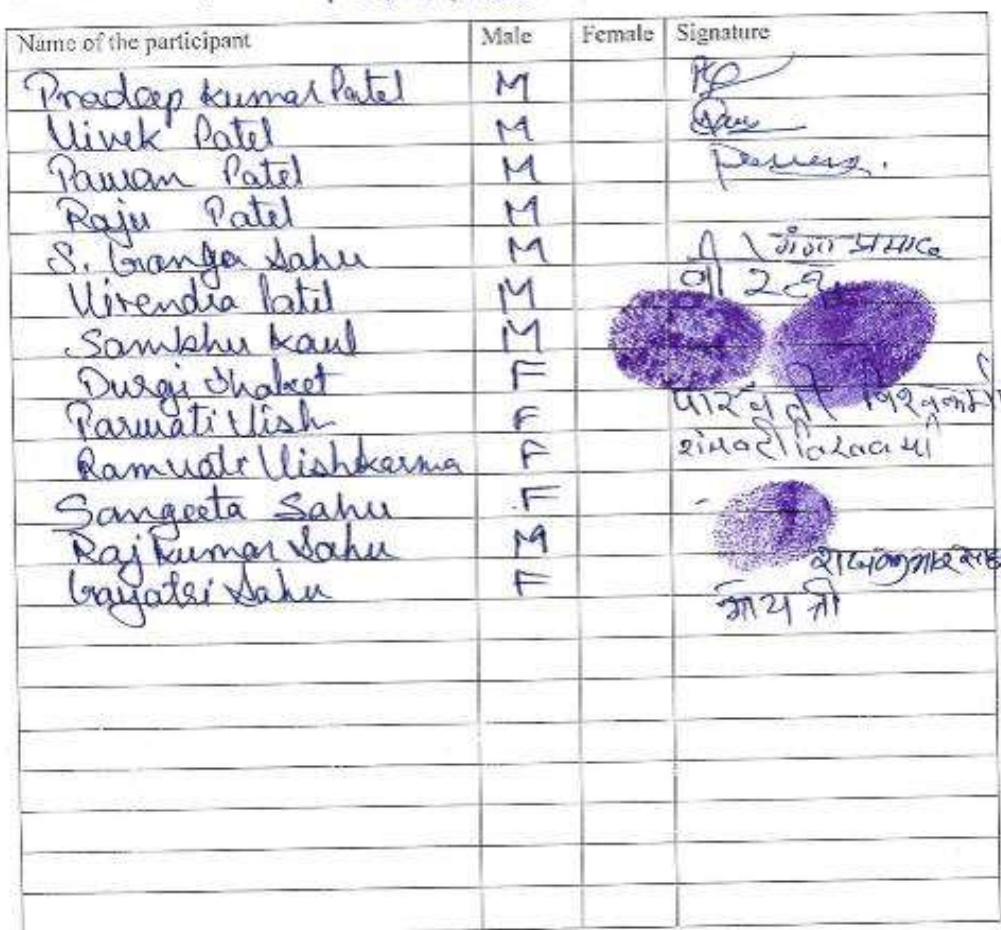 Name of the participant Male Female Signature
Pradeep Kumar Patel M
Vivek Patel M
Pawan Patel M
Raju Patel M
S. Ganga Sahu M गंगा प्रसाद
Virendra Patel M
Sambhu Kaul M
Durgi Shaket F
Parwati Vish F पारवती विश्वकर्मा
Ramvati Vishkarma F
Sangeeta Sahu F
Raj Kumar Sahu M
Gayatri Sahu F गायत्री